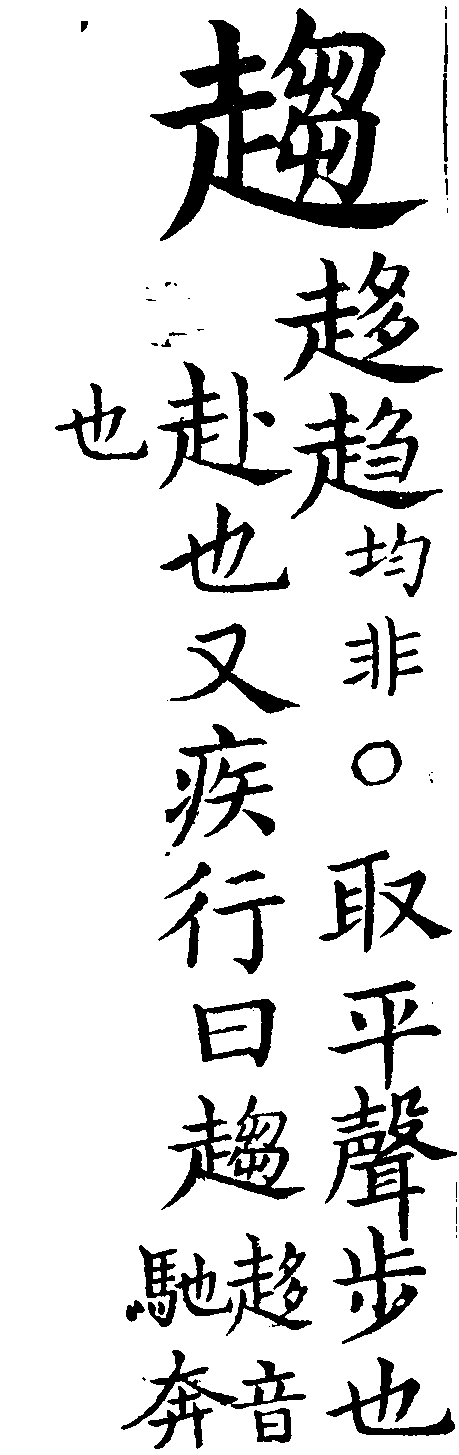 趨
趍趋均非○取平聲步也
赴也又疾行曰趨
趍音
馳奔
也